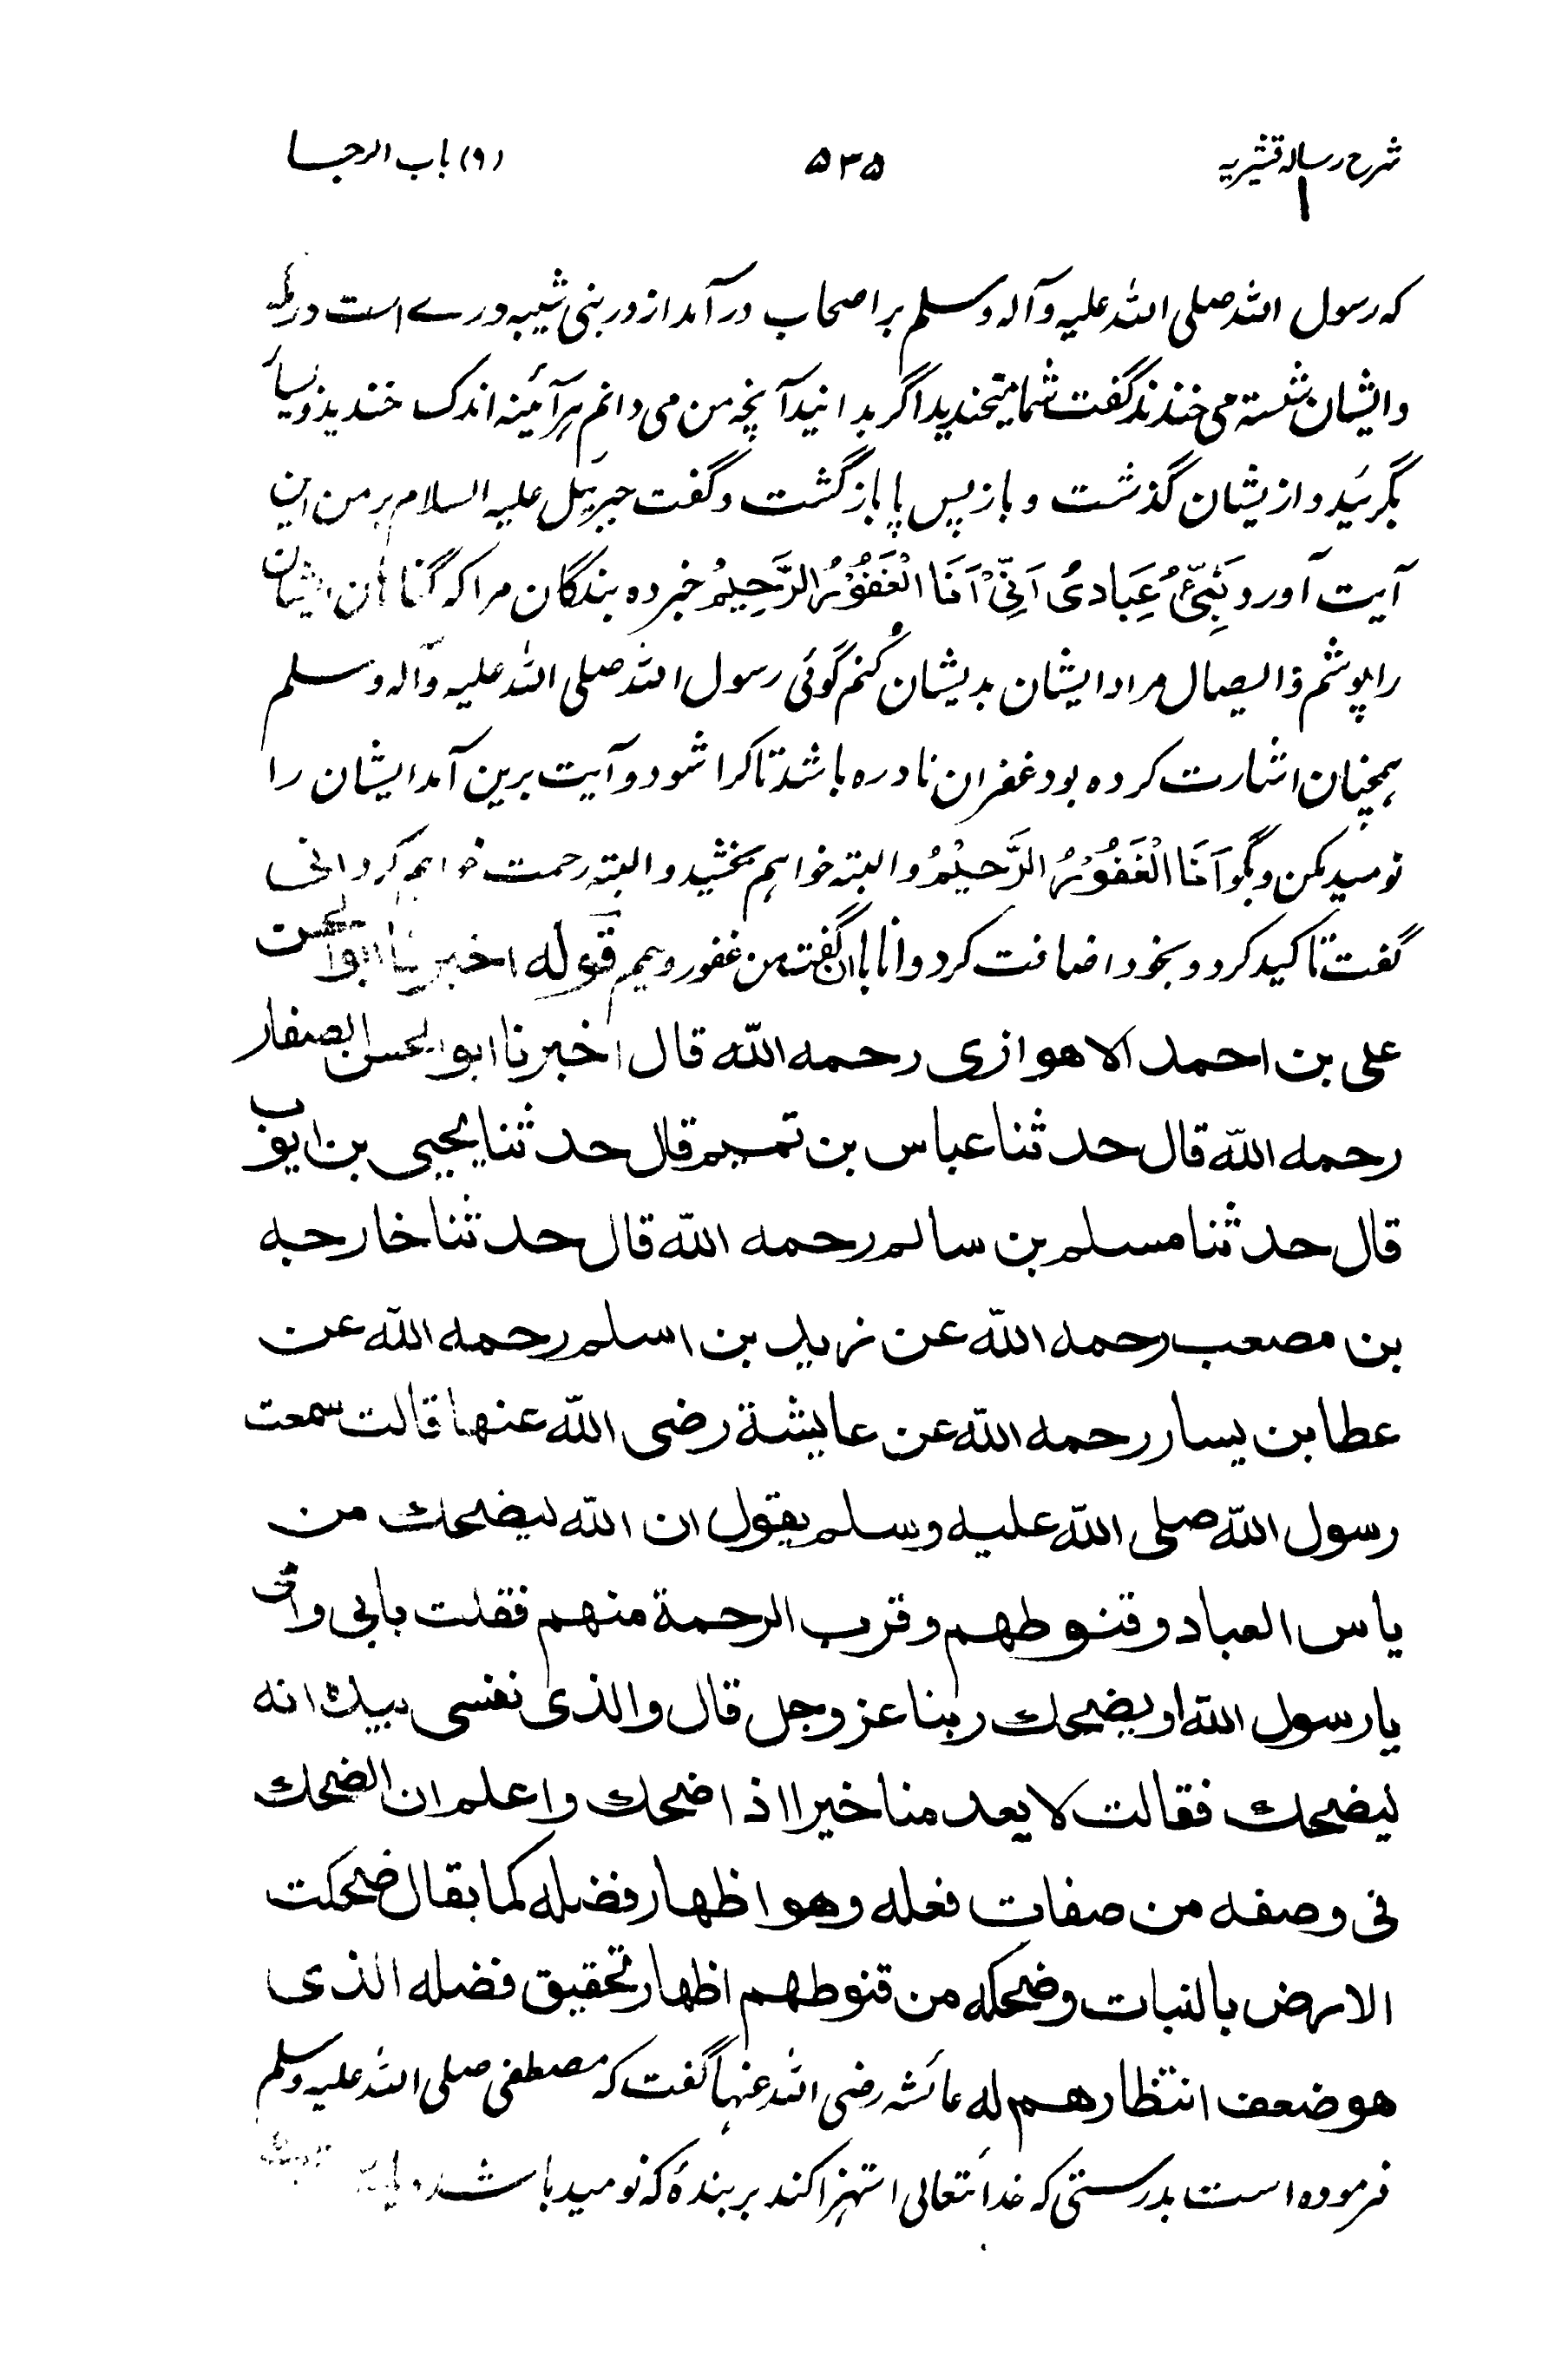 شرح رسالہ قشیریہ ۵۳۵ (۹) باب الرجا
کہ رسول اللہ صلی اللہ علیہ وآلہ وسلم بر اصحاب در آمد از در بنی شیبہ درے است در مکہ
و ایشان نشستہ می خندند گفت شما میخندید اگر بدانید آنچہ من می دانم ہر آئینہ اندک خندید و بسیار
بگریید و از یشان گذشت و باز پس پا باز گشت و گفت جبرئیل علیہ السلام بر من این
آیت آورد نَبِّئْ عِبَادِیْ اَنِّیْ اَنَا الْغَفُوْرُ الرَّحِیْمُ خبر دہ بندگان مرا کہ گناہان ایشان
را پوشم و ایصال مراد ایشان بدیشان کُنم گوئی رسول اللہ صلی اللہ علیہ وآلہ وسلم
ہمچنان اشارت کردہ بود غفران نادرہ باشد تا کرا شود و آیت برین آمد ایشان را
نومید مکن و بگو اَنَا الْغَفُوْرُ الرَّحِیْمُ والبتہ خواہم بخشید و البتہ رحمت خواہم کرد انی
گفت تاکید کرد و بخود اضافت کرد و انا با ان گفت من غفور رحیم قولہ اخبرنا ابو الحسن
علی بن احمد الاهوازی رحمه الله قال اخبرنا ابو الحسن الصفار
رحمه الله قال حدثنا عباس بن تمیم قال حدثنا یحیی بن ایوب
قال حدثنا مسلم بن سالم رحمه الله قال حدثنا خارجه
بن مصعب رحمه الله عن زید بن اسلم رحمه الله عن
عطا بن یسار رحمه الله عن عایشة رضی الله عنها قالت سمعت
رسول الله صلی الله علیه وسلم یقول ان الله لیضحك من
یاس العباد وقنوطهم وقرب الرحمة منهم فقلت بابی وامی
یا رسول الله او یضحك ربنا عز وجل قال والذی نفسی بیده انه
لیضحك فقالت لا یعدمنا خیرا اذا ضحك واعلم ان الضحك
فی وصفه من صفات فعله وهو اظهار فضله کما یقال ضحکت
الارض بالنبات وضحکه من قنوطهم اظهار تحقیق فضله الذی
هو ضعف انتظارهم له عائشہ رضی اللہ عنہا گفت کہ مصطفی صلی اللہ علیہ وسلم
فرمودہ است بدرستی کہ خدا تعالی استہزا کند بر بندۂ کہ نومید باشد